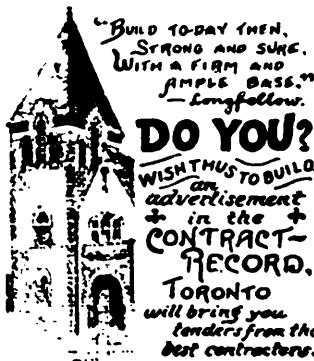 "BUILD TO-DAY THEN,
STRONG AND SURE,
WITH A FIRM AND
AMPLE BASE."
—Longfellow.
DO YOU?
WISH THUS TO BUILD
an
advertisement
in the
CONTRACT-
RECORD,
TORONTO
will bring you
tenders from the
best contractors.